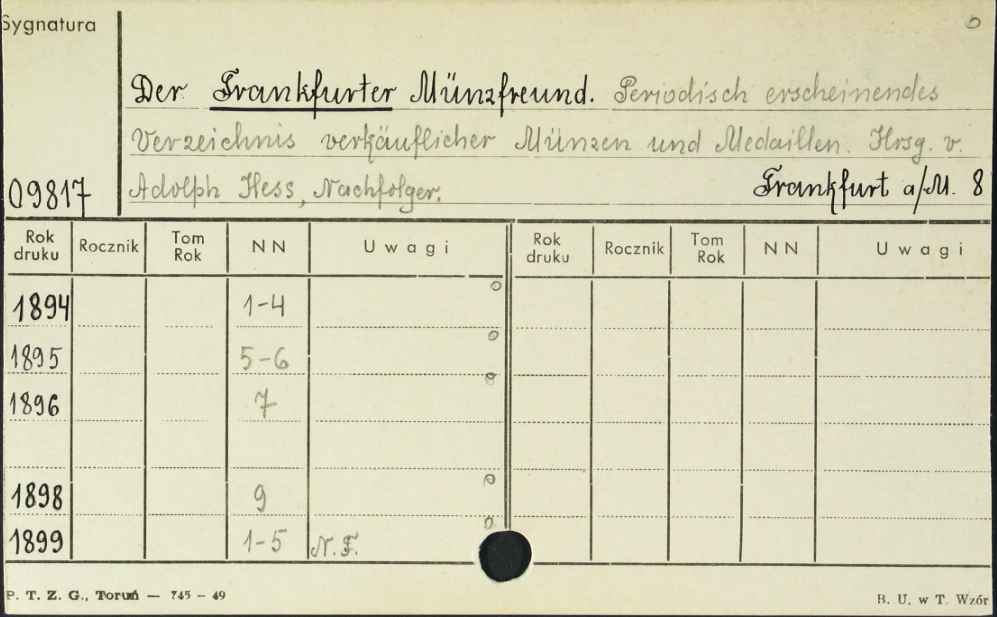 Sygnatura
Der Frankfurter Münzfreund. Periodisch erscheinendes
Verzeichnis verkäuflicher Münzen und Medaillen. Hrsg. v.
09817 Adolph Hess, Nachfolger. Frankfurt a/M. 8
Rok druku Rocznik Tom Rok NN Uwagi Rok druku Rocznik Tom Rok NN Uwagi
1894 1-4
1895 5-6
1896 7
1898 9
1899 1-5 N. F.
P. T. Z. G., Toruń — 745 - 49 B. U. w T. Wzór